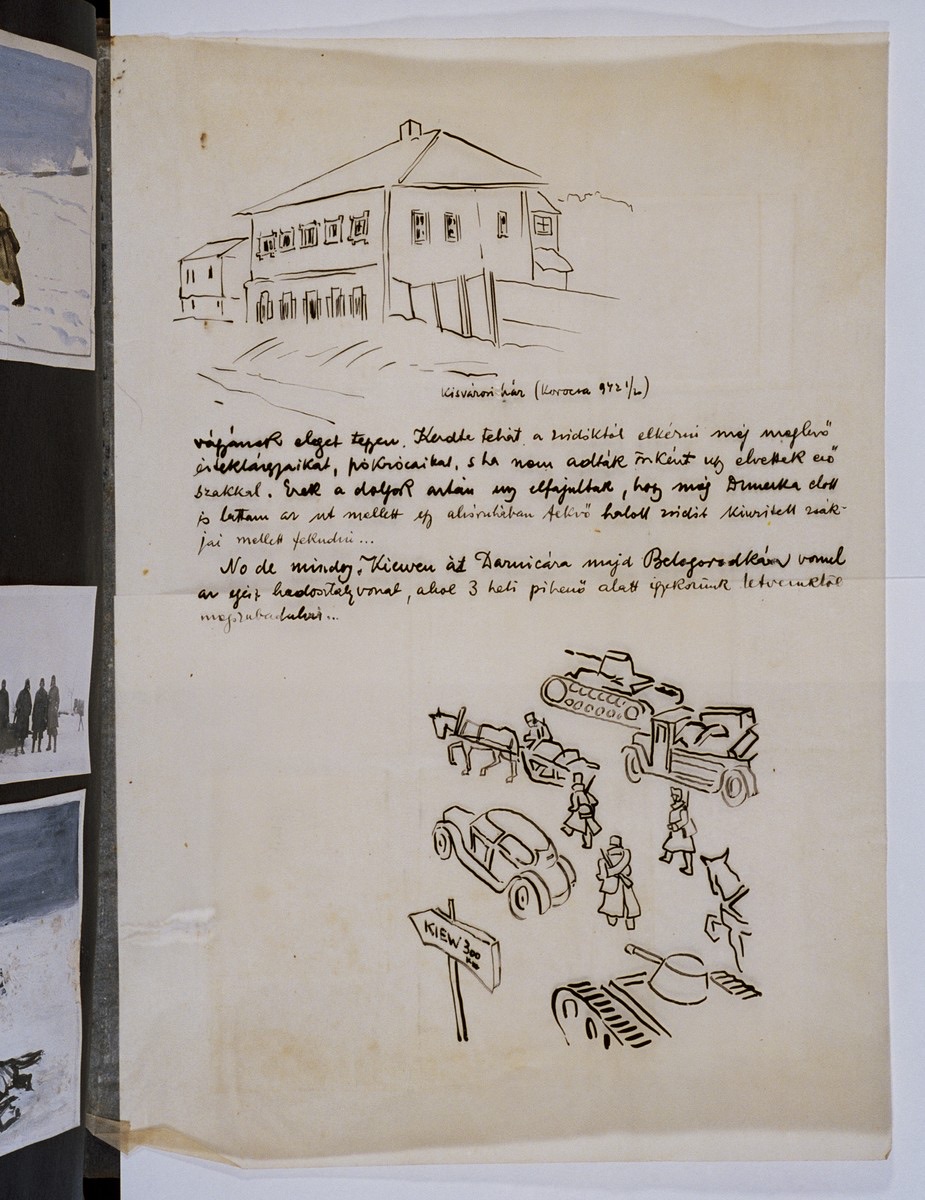 Kisvárosi ház (Korocsa 942 1/2)
vágjanak eleget tegyen. Kezdte tehát a zsidóktól elkérni még meglevő
értéktárgyaikat, pokrócaikat, s ha nem adták önként úgy elvették erő
szakkal. Ezek a dolgok aztán úgy elfajultak, hogy még Dimerka előtt
is láttam az út mellett egy alsóruhában fekvő halott zsidót kiürített zsák-
jai mellett feküdni...
No de mindegy. Kiewen át Darnicára majd Belogorodkára vonul
az egész hadosztályvonat, ahol 3 heti pihenő alatt igyekszünk tetveinktől
megszabadulni...
KIEW 300
km